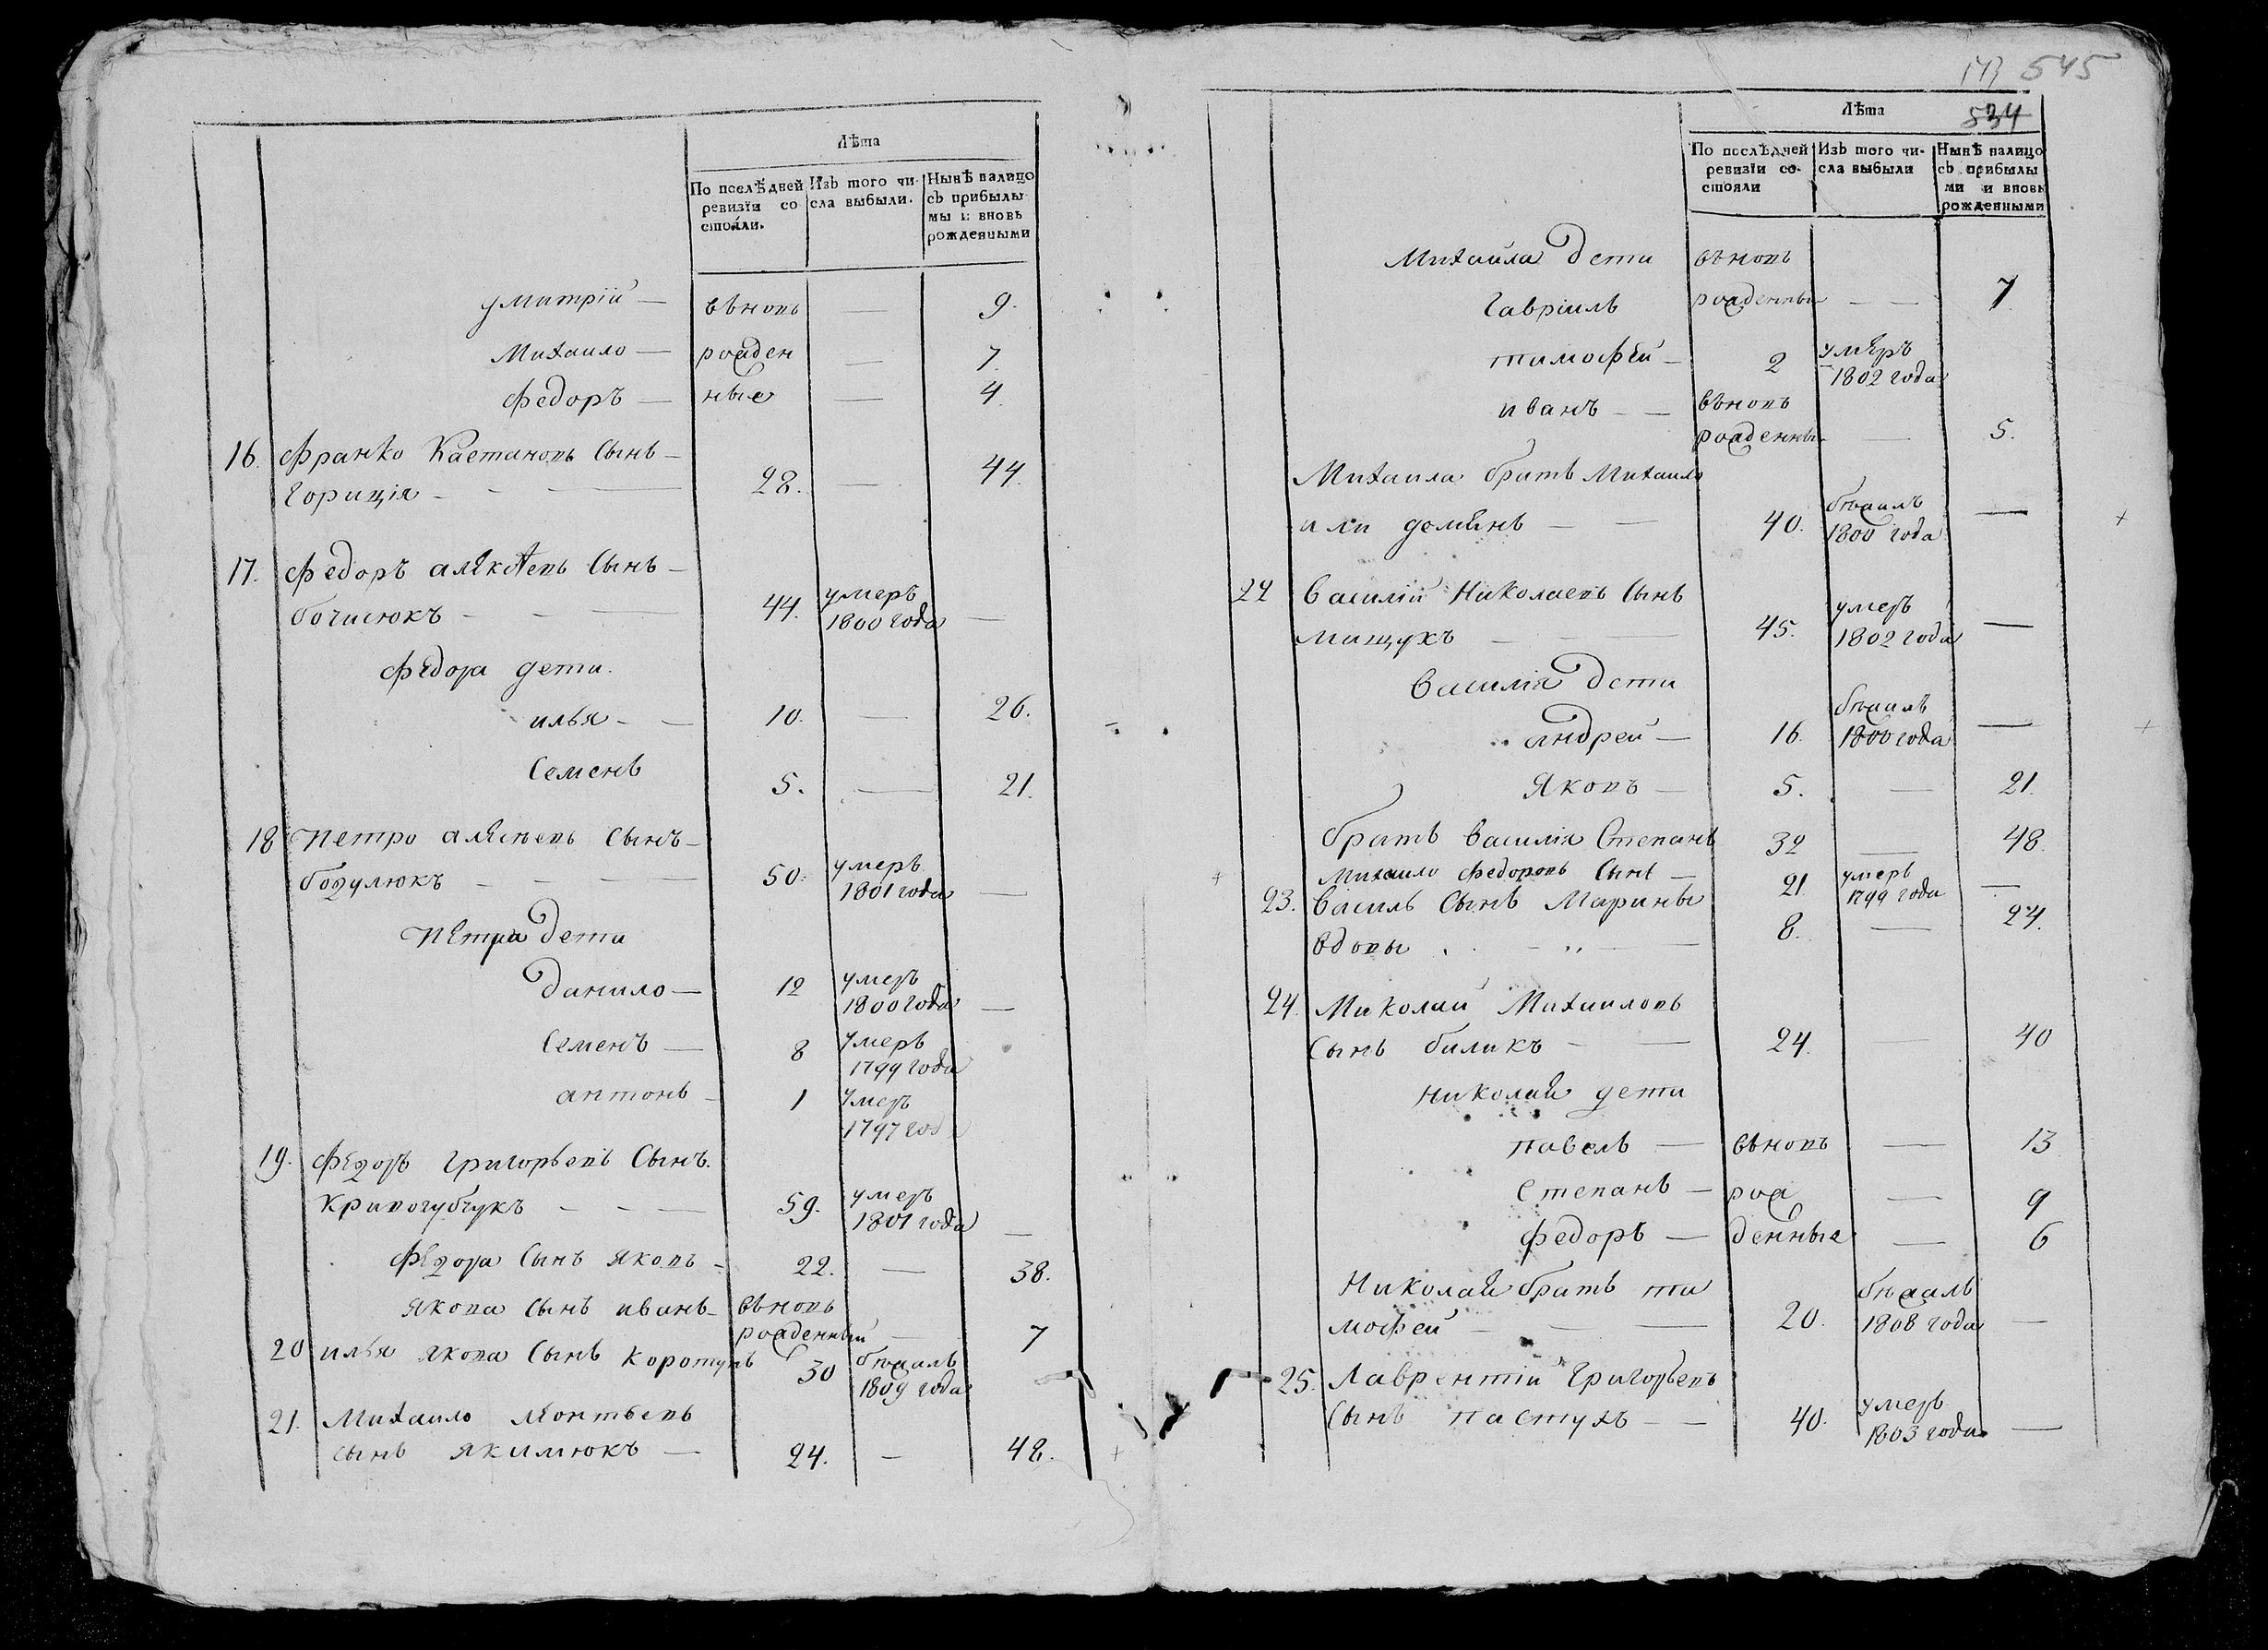 Лѣта
По послѣдней ревизіи состояли.
Изъ того числа выбыли.
Нынѣ налицо съ прибылымы и вновь рожденными
умитрій — вѣновь — 9.
Михаило — рожден — 7.
федоръ — ные — 4
16. франко Каетановъ Сынъ —
гориція — 28. — 44.
17. федоръ алексѣевъ Сынъ —
бочисюкъ — 44. умеръ 1800 года —
федора дети.
илья — 10. — 26.
Семенъ 5. — 21.
18 петро алексѣевъ Сынъ —
бодулюкъ — 50. умеръ 1801 года —
петра дети
данило — 12 умеръ 1800 года —
Семенъ — 8 умеръ 1799 года
антонъ — 1 умеръ 1797 год
19. федоръ григорьевъ Сынъ.
кривогубчукъ — 59. умеръ 1801 года —
федора Сынъ яковъ — 22. — 38.
якова Сынъ иванъ — вѣновь рожденный — 7
20 илья якова Сынъ коротунъ 30 бѣжалъ 1809 года
21. Михаило леонтьевъ
сынъ якимюкъ — 24. — 48.
173 545
Лѣта 534
По послѣдней ревизіи состояли
Изъ того числа выбыли
Нынѣ налицо съ прибылыми и вновь рожденными
Михаила дети вѣновь
гавріилъ рожденный — 7
тимофей — 2 умеръ 1802 года
иванъ — вѣновь
рожденный — 5.
Михаила братъ Михаило
или деменъ — 40. бѣжалъ 1800 года —
22 василій николаевъ Сынъ
мищукъ — 45. умеръ 1802 года —
василія дети
андрей — 16. бѣжалъ 1800 года —
яковъ — 5. — 21.
братъ василія Степанъ 32 — 48.
Михаило федоровъ Сынъ — 21 умеръ 1799 года —
23. василь Сынъ Марины
вдовы — 8. — 24.
24. Миколай Михаиловъ
Сынъ биликъ — 24. 40
николая дети
павелъ — вѣновь — 13
Степанъ — рож — 9
федоръ — денные — 6
николая братъ ти
мофей — 20. бѣжалъ 1808 года —
25. Лаврентій григорьевъ
Сынъ пастухъ — 40. умеръ 1803 года —